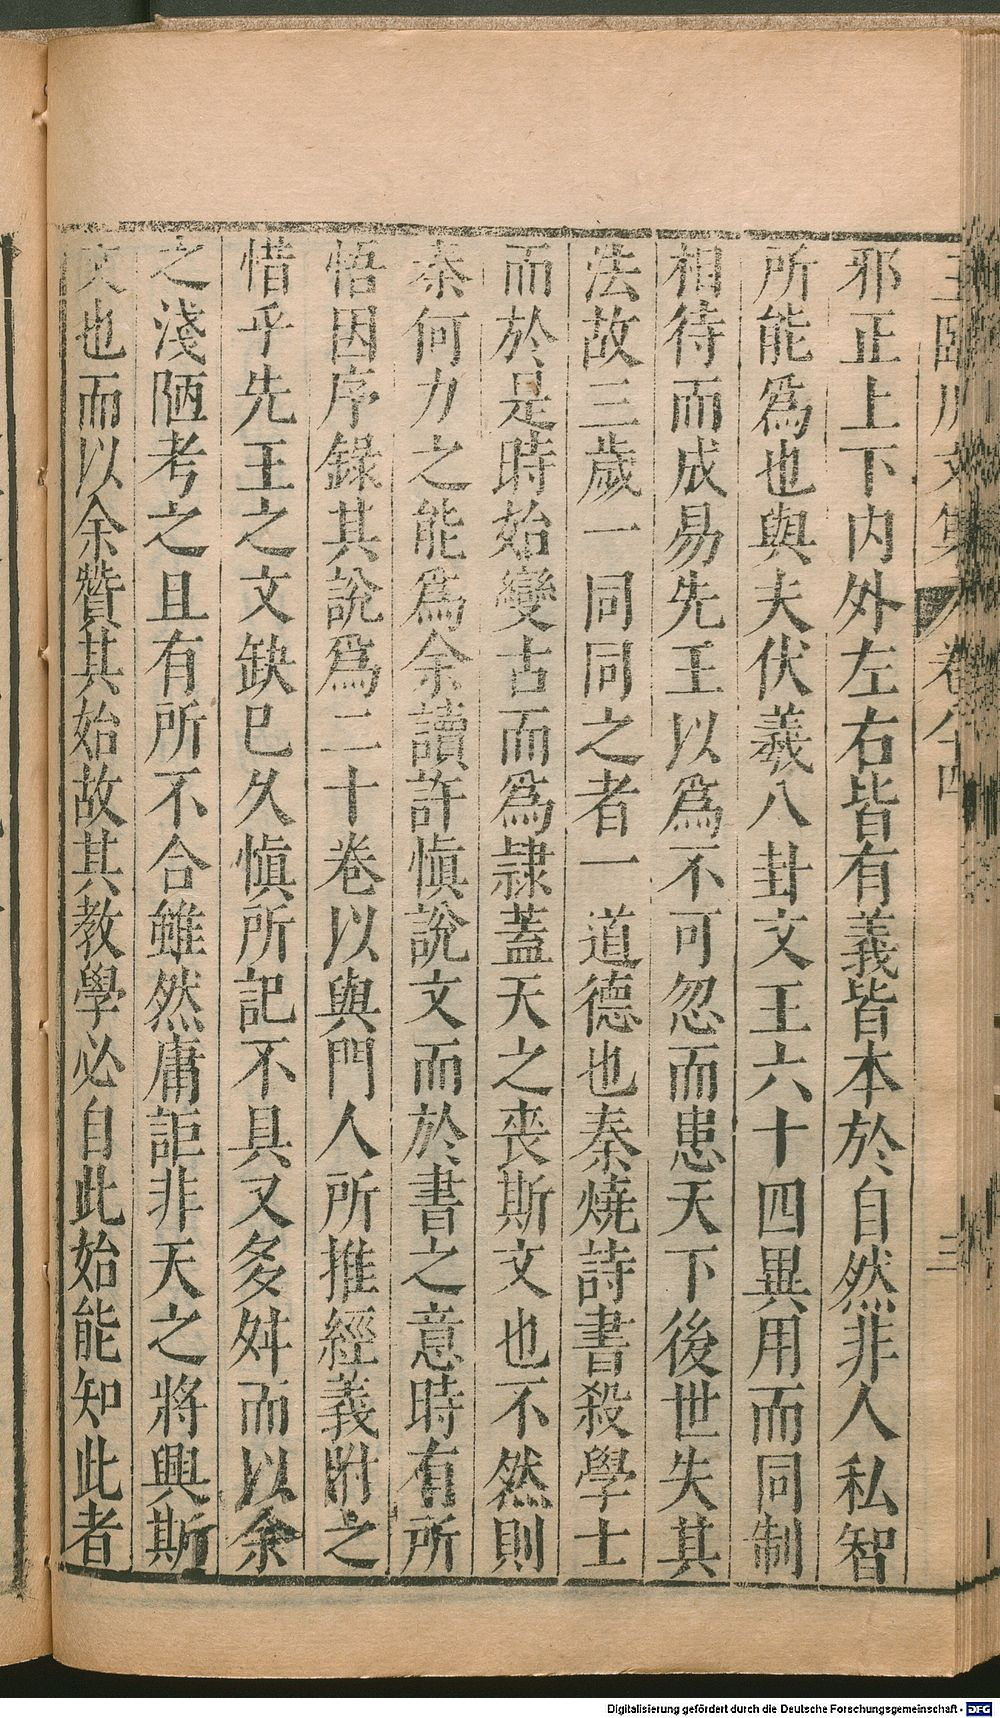 王臨川文集 卷八十四 三
邪正上下內外左右皆有義皆本於自然非人私智
所能爲也與夫伏羲八卦文王六十四異用而同制
相待而成易先王以爲不可忽而患天下後世失其
法故三歲一同同之者一道德也秦燒詩書殺學士
而於是時始變古而爲隷蓋天之喪斯文也不然則
秦何力之能爲余讀許愼說文而於書之意時有所
悟因序錄其說爲二十卷以與門人所推經義附之
惜乎先王之文缺已久愼所記不具又多舛而以余
之淺陋考之且有所不合雖然庸詎非天之將興斯
文也而以余贊其始故其教學必自此始能知此者
Digitalisierung gefördert durch die Deutsche Forschungsgemeinschaft - DFG